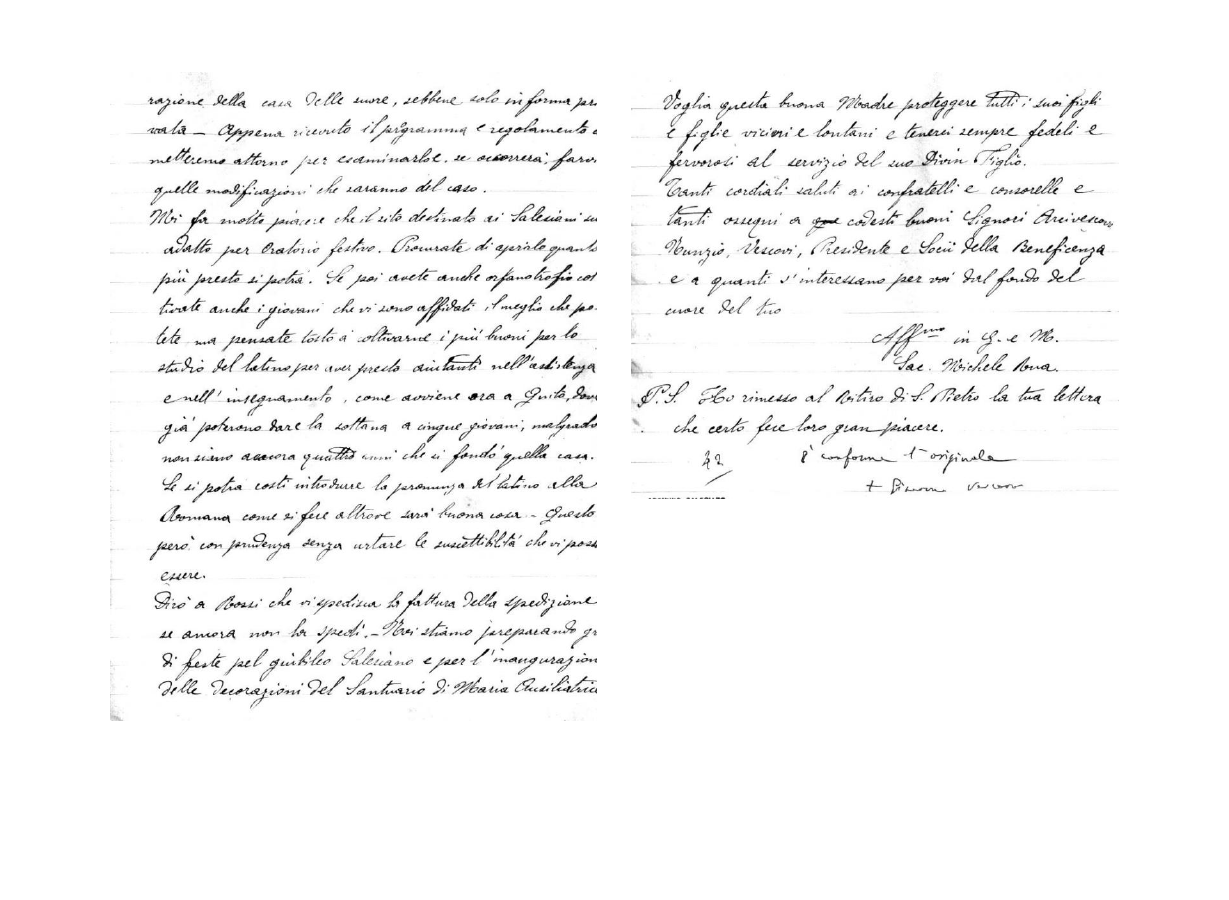 razione della casa delle suore, sebbene solo in forma pri
vata – Appena ricevuto il prgramma e regolamento
metteremo attorno per esaminarlo e, se occorrerà, farvi
quelle modificazioni che saranno del caso.
Mi fa molto piacere che il sito destinato ai Salesiani
adatto per Oratorio festivo. Procurate di aprirlo quanto
più presto si potrà. Se poi avete anche orfanotrofio col
tivate anche i giovani che vi sono affidati il meglio che po
tete ma pensate tosto a coltivarne i più buoni per lo
studio del latino per aver presto aiutanti nell'assistenza
e nell'insegnamento, come avviene ora a Quito, dove
già poterono dare la sottana a cinque giovani, malgrado
non siano ancora quattro anni che si fondò quella casa.
Se si potrà costì introdurre la pronunza del latino alla
Romana come si fece altrove sarà buona cosa – Questo
però con prudenza senza urtare le suscettibilità che vi poss
essere.
Dirò a Rossi che vi spedisca la fattura della spedizione
se ancora non la spedì. – Noi stiamo preparando gr
di feste pel giubileo Salesiano e per l'inaugurazion
delle decorazioni del Santuario di Maria Ausiliatrice
Voglia questa buona Madre proteggere tutti i suoi figli
e figlie vicini e lontani e tenerci sempre fedeli e
fervorosi al servizio del suo Divin Figlio.
Tanti cordiali saluti ai confratelli e consorelle e
tanti ossequi a codesti buoni Signori Arcivescovo
Nunzio, Vescovi, Presidente e Socii della Beneficenza
e a quanti s'interessano per voi dal fondo del
cuore del tuo
Aff.mo in G. e M.
Sac. Michele Rua.
P.S. Ho rimesso al Ritiro di S. Pietro la tua lettera
che certo fece loro gran piacere.
È conforme l'originale